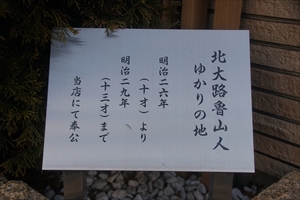 北大路魯山人
ゆかりの地
明治二六年
（十才）より
明治二九年
（十三才）まで
当店にて奉公